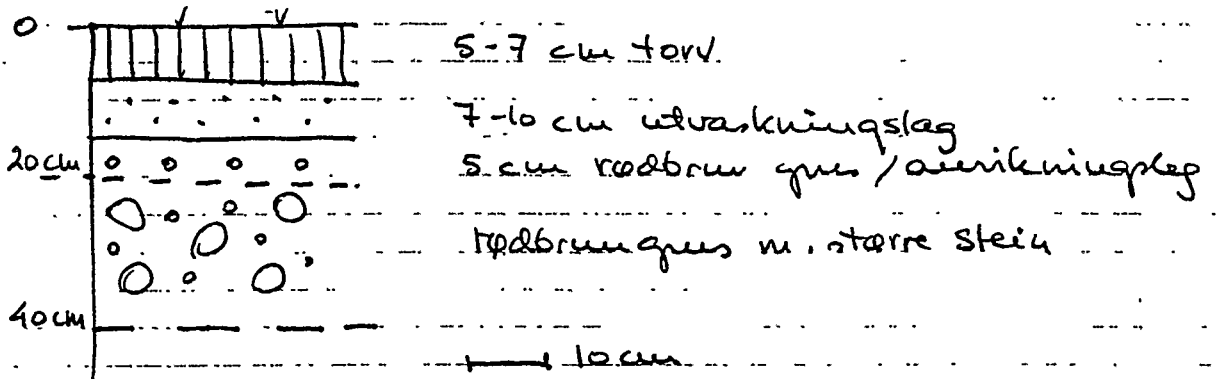 0
5-7 cm torv
7-10 cm utvaskningslag
20cm
5 cm rødbrun grus / anrikningslag
rødbrun grus m. større stein
40cm
10cm